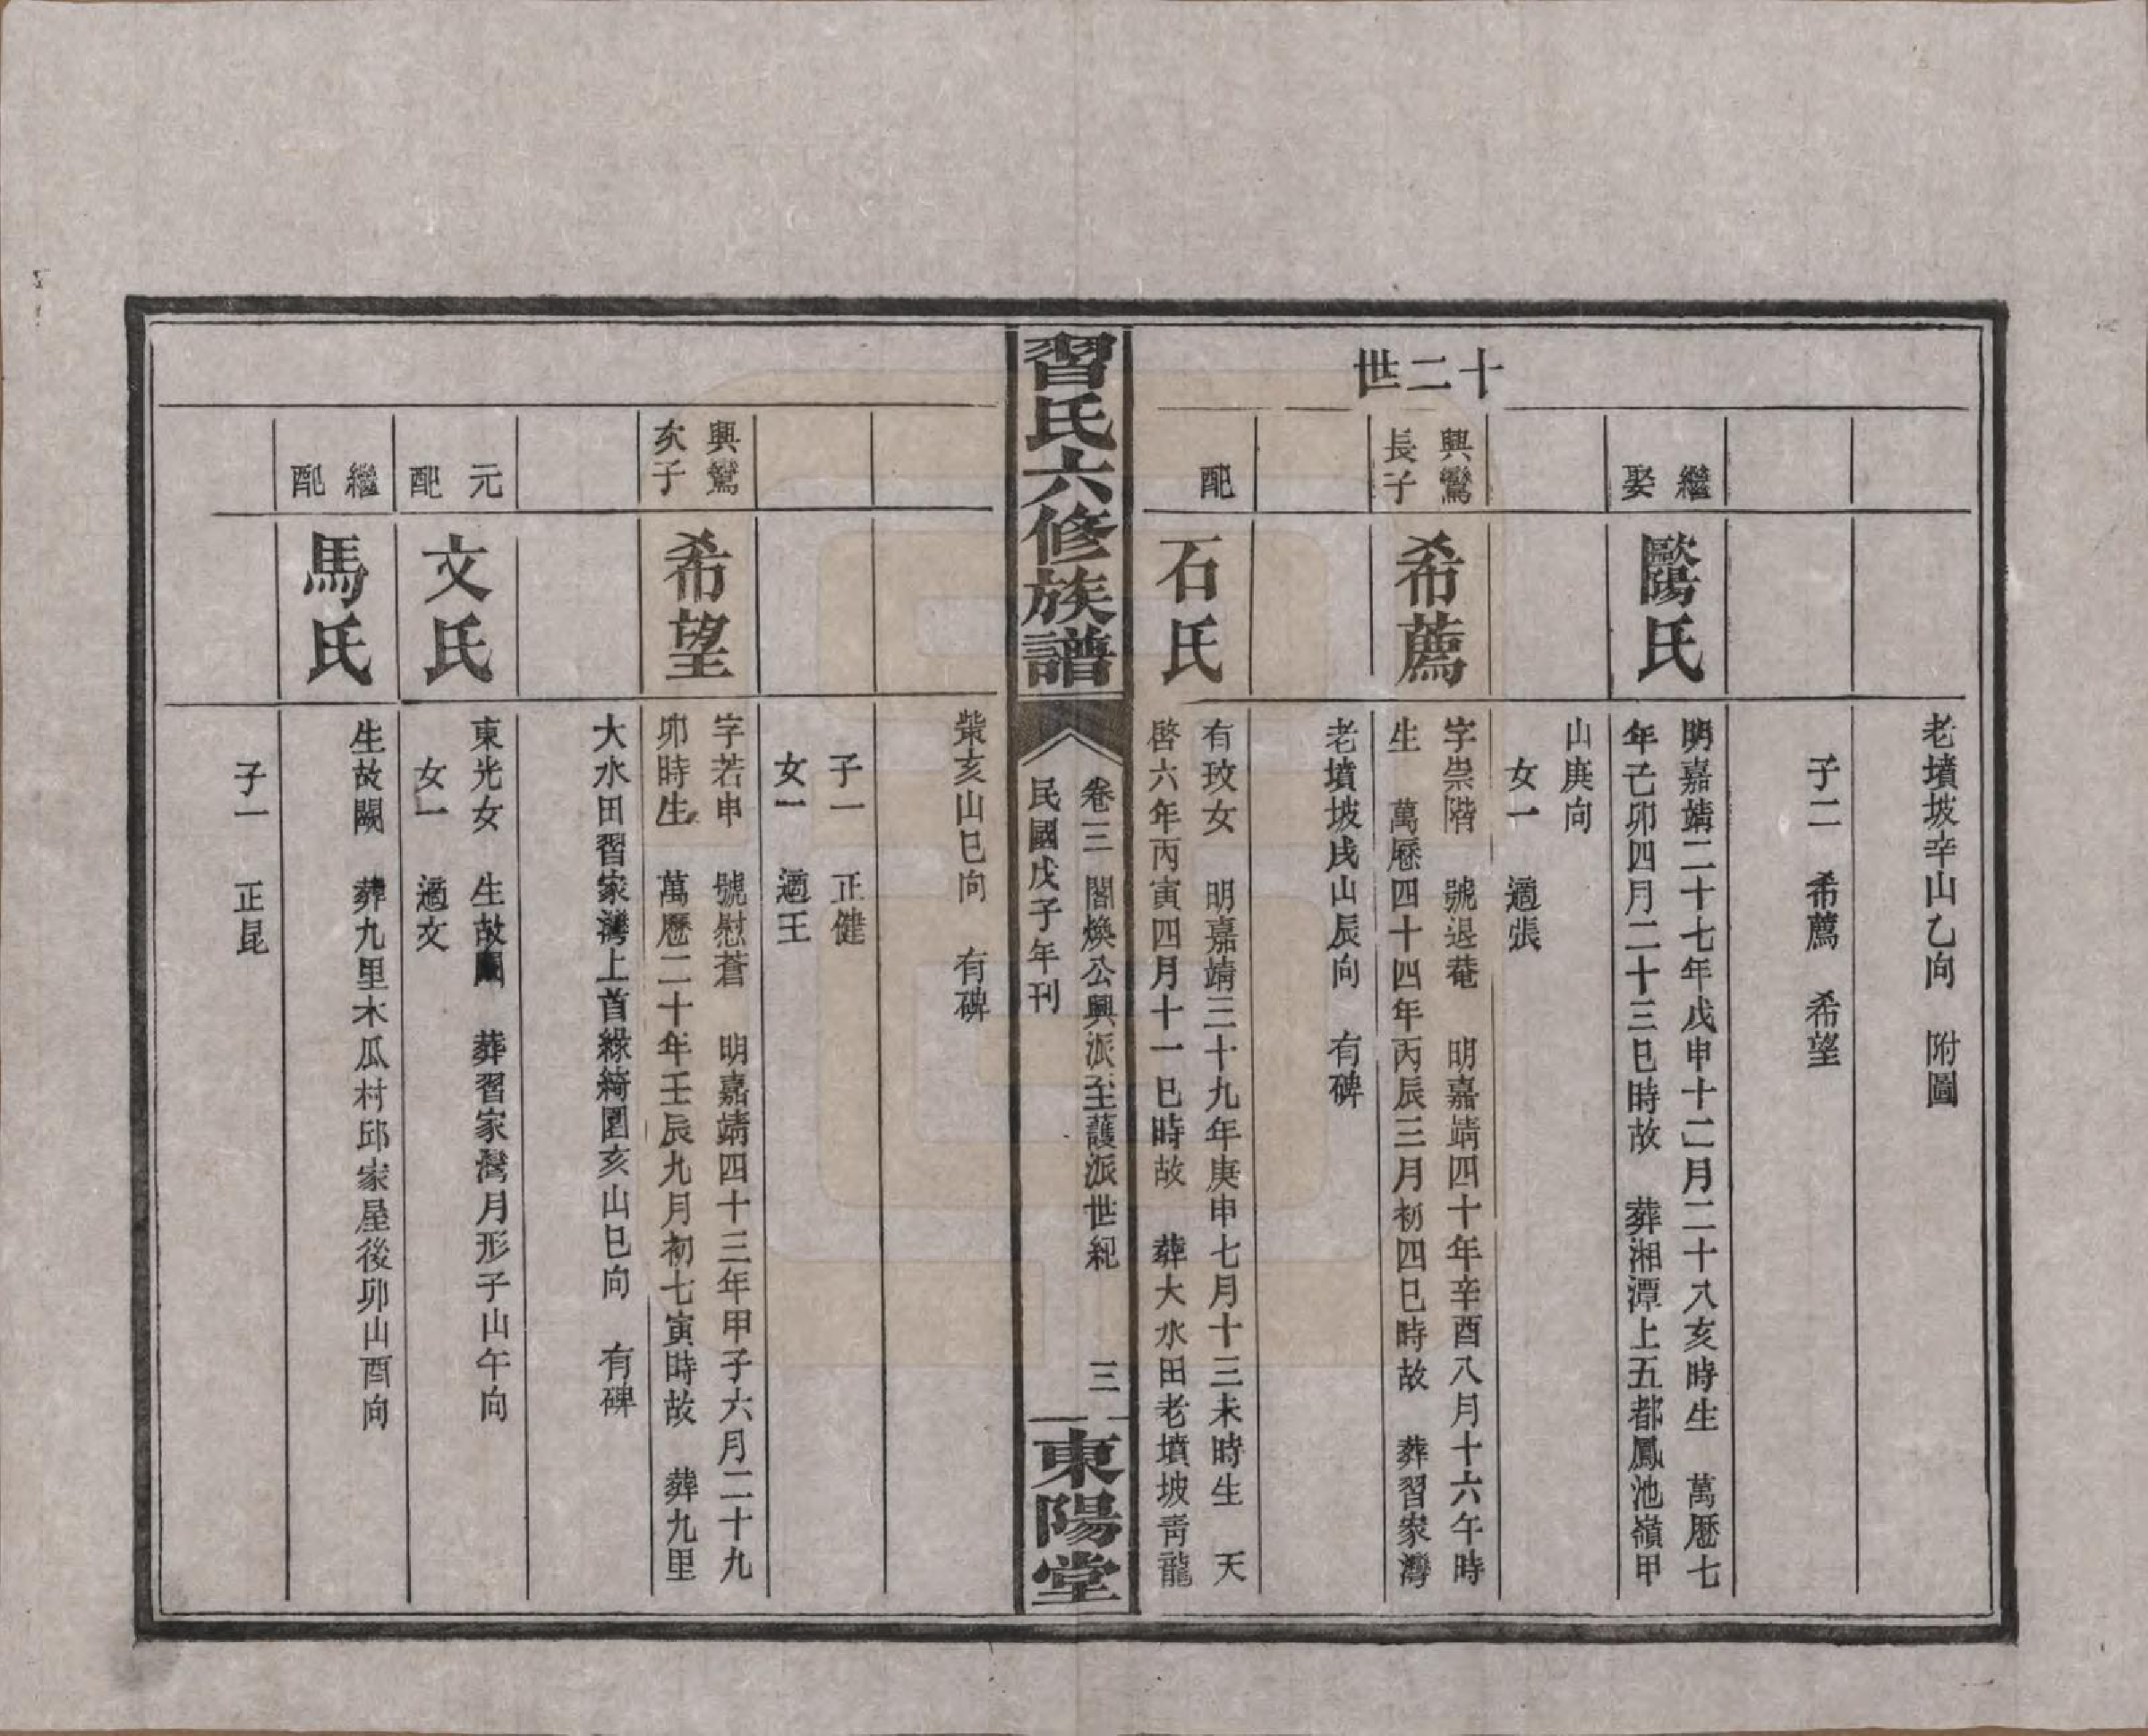 老墳坡辛山乙向　附圖
子二　希薦　希望
繼娶
歐陽氏
明嘉靖二十七年戊申十二月二十八亥時生　萬歷七
年己卯四月二十三巳時故　葬湘潭上五都鳳池嶺甲
山庚向
女一　適張
十二世
興鸞
長子
希薦
字崇階　號退菴　明嘉靖四十年辛酉八月十六午時
生　萬歷四十四年丙辰三月初四巳時故　葬習家灣
老墳坡戌山辰向　有碑
配
石氏
有玟女　明嘉靖三十九年庚申七月十三未時生　天
啓六年丙寅四月十一巳時故　葬大水田老墳坡靑龍
習氏六修族譜
卷三　閣煥公興派至護派世紀　三
民國戊子年刊
東陽堂
柴亥山巳向　有碑
子一　正健
女一　適王
興鸞
次子
希望
字若申　號慰蒼　明嘉靖四十三年甲子六月二十九
卯時生　萬歷二十年壬辰九月初七寅時故　葬九里
大水田習家灣上首綠綺園亥山巳向　有碑
元配
文氏
東光女　生故闕　葬習家灣月形子山午向
女一　適文
繼配
馬氏
生故闕　葬九里木瓜村邱家屋後卯山酉向
子一　正昆